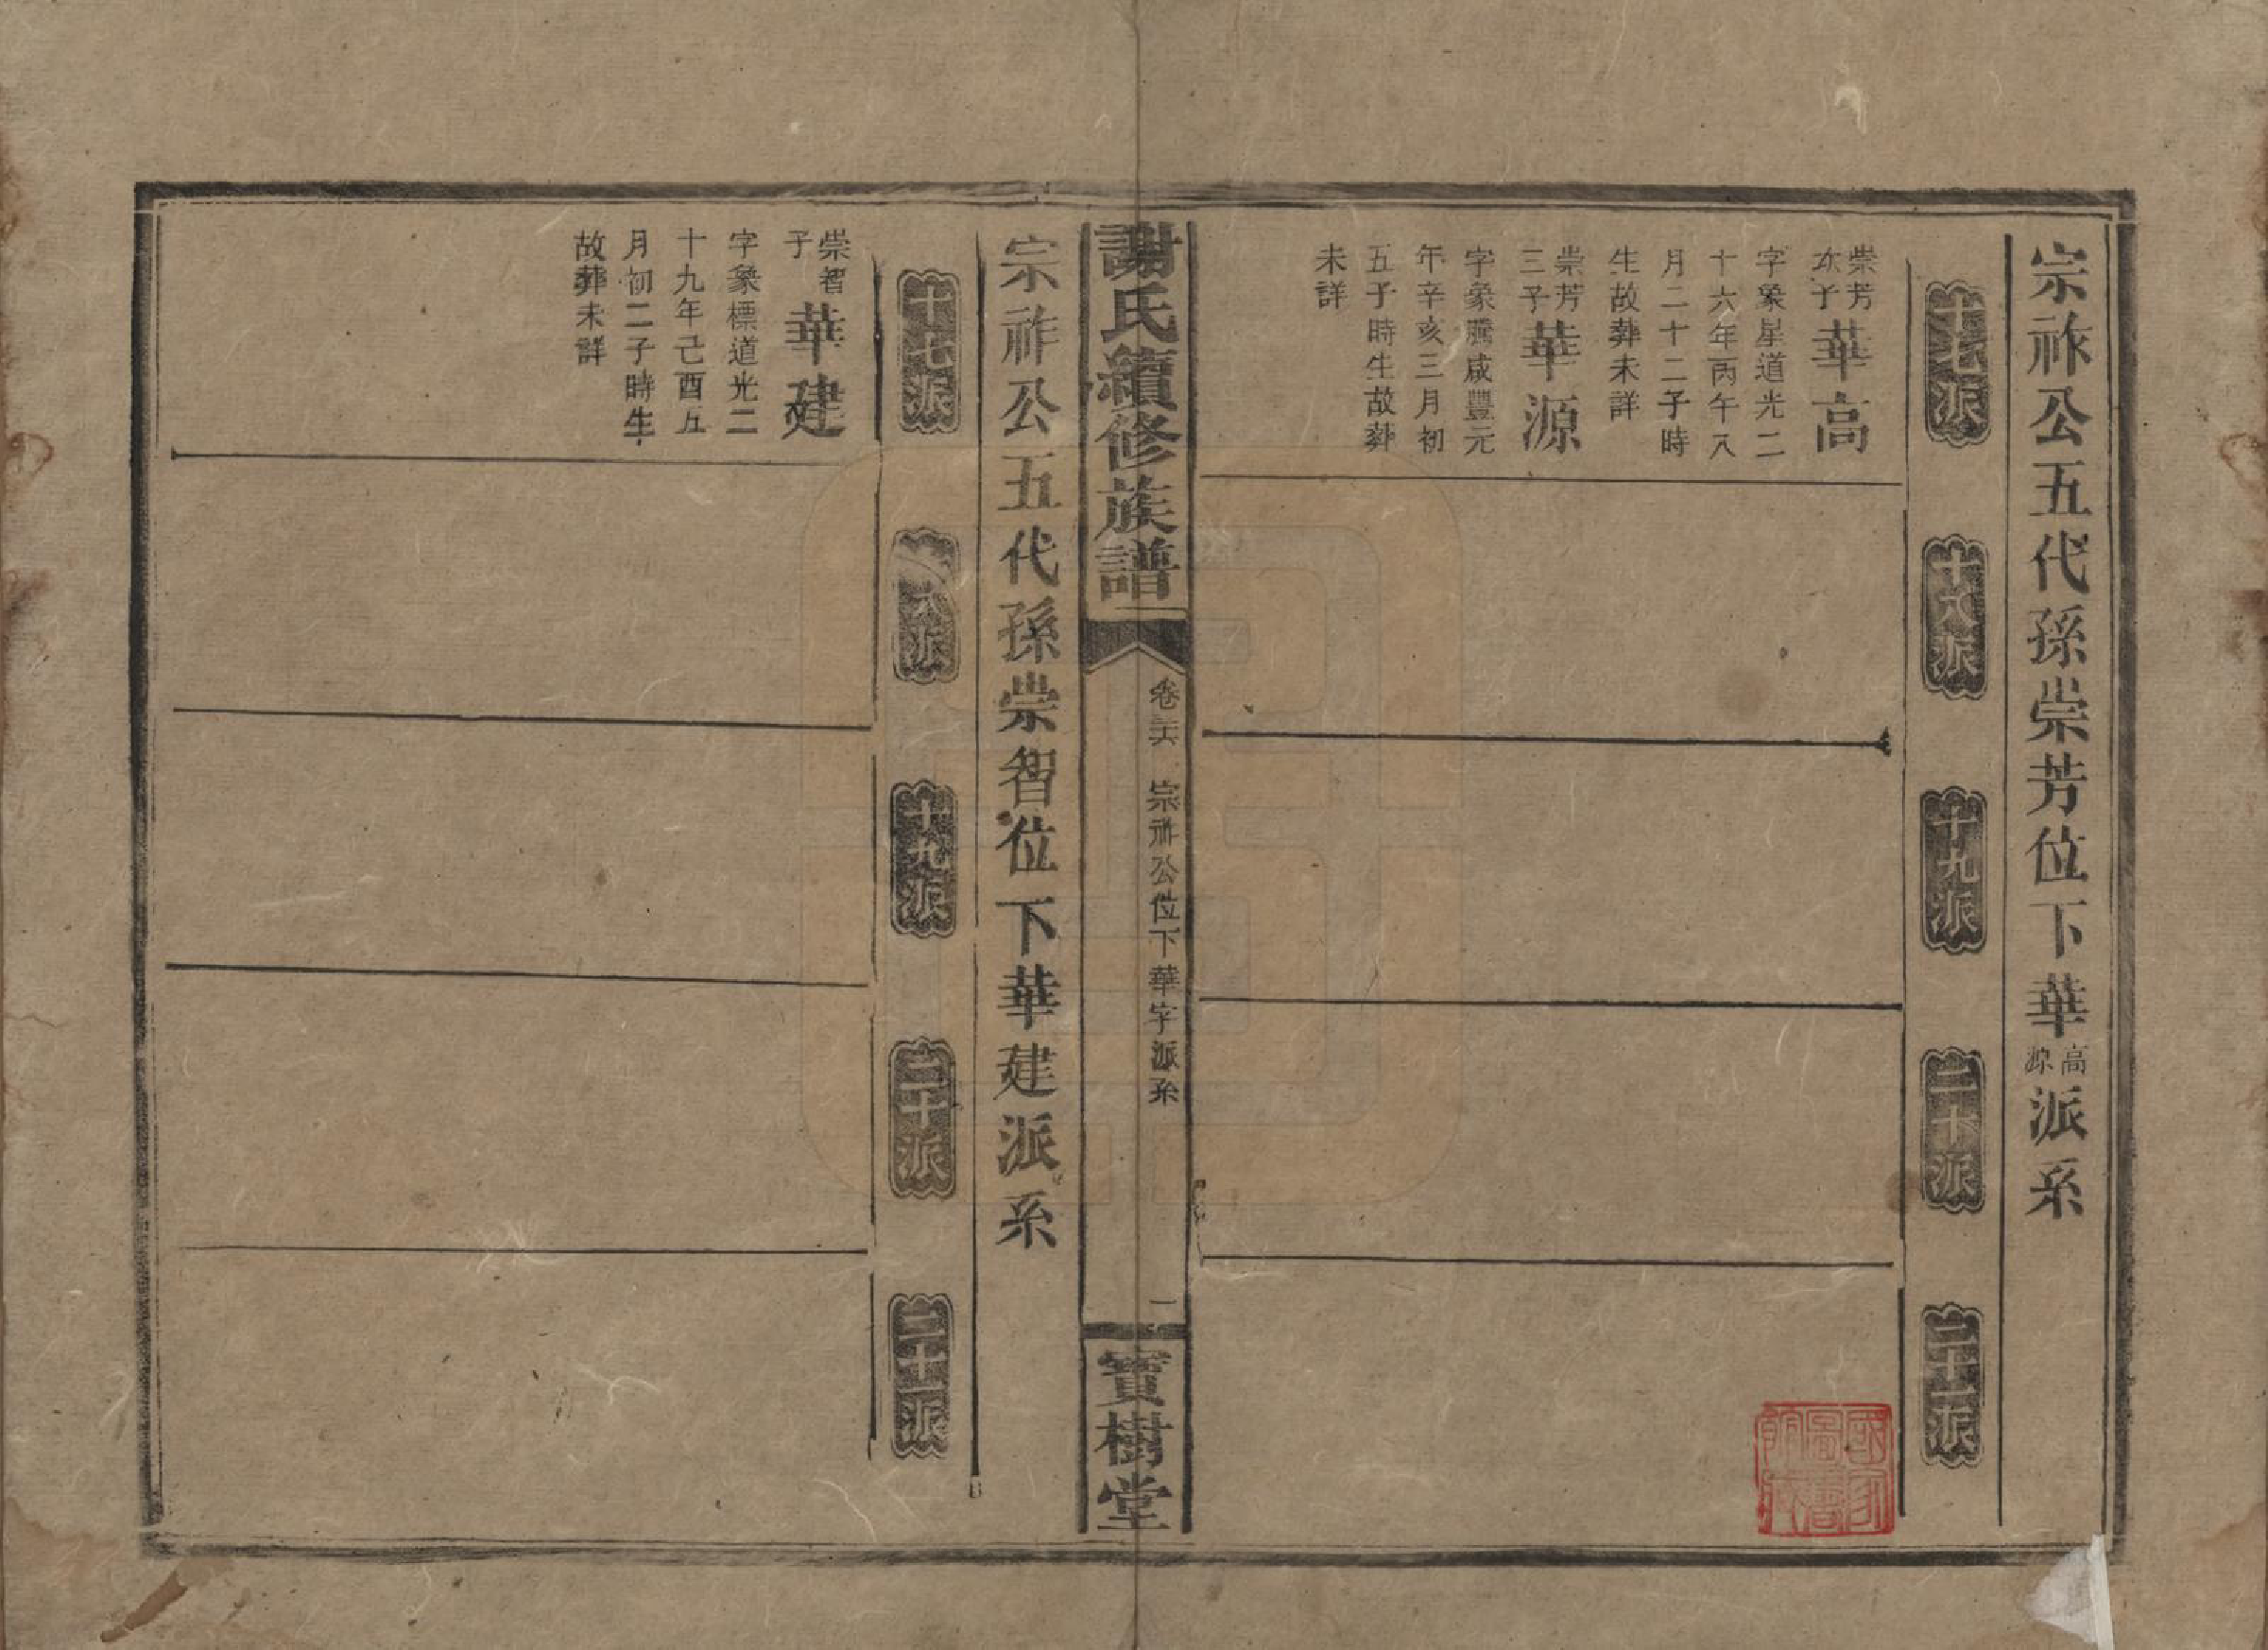 宗祚公五代孫崇芳位下華高源派系
十七派
十八派
十九派
二十派
二十一派
崇芳
次子
華高
字象星道光二
十六年丙午八
月二十二子時
生故葬未詳
崇芳
三子
華源
字象騰咸豐元
年辛亥三月初
五子時生故葬
未詳
謝氏續修族譜
卷二十六
宗祚公位下華字派系
一
寶樹堂
宗祚公五代孫崇智位下華建派系
十七派
十八派
十九派
二十派
二十一派
崇智
子
華建
字象標道光二
十九年己酉五
月初二子時生
故葬未詳
國家
圖書
館藏